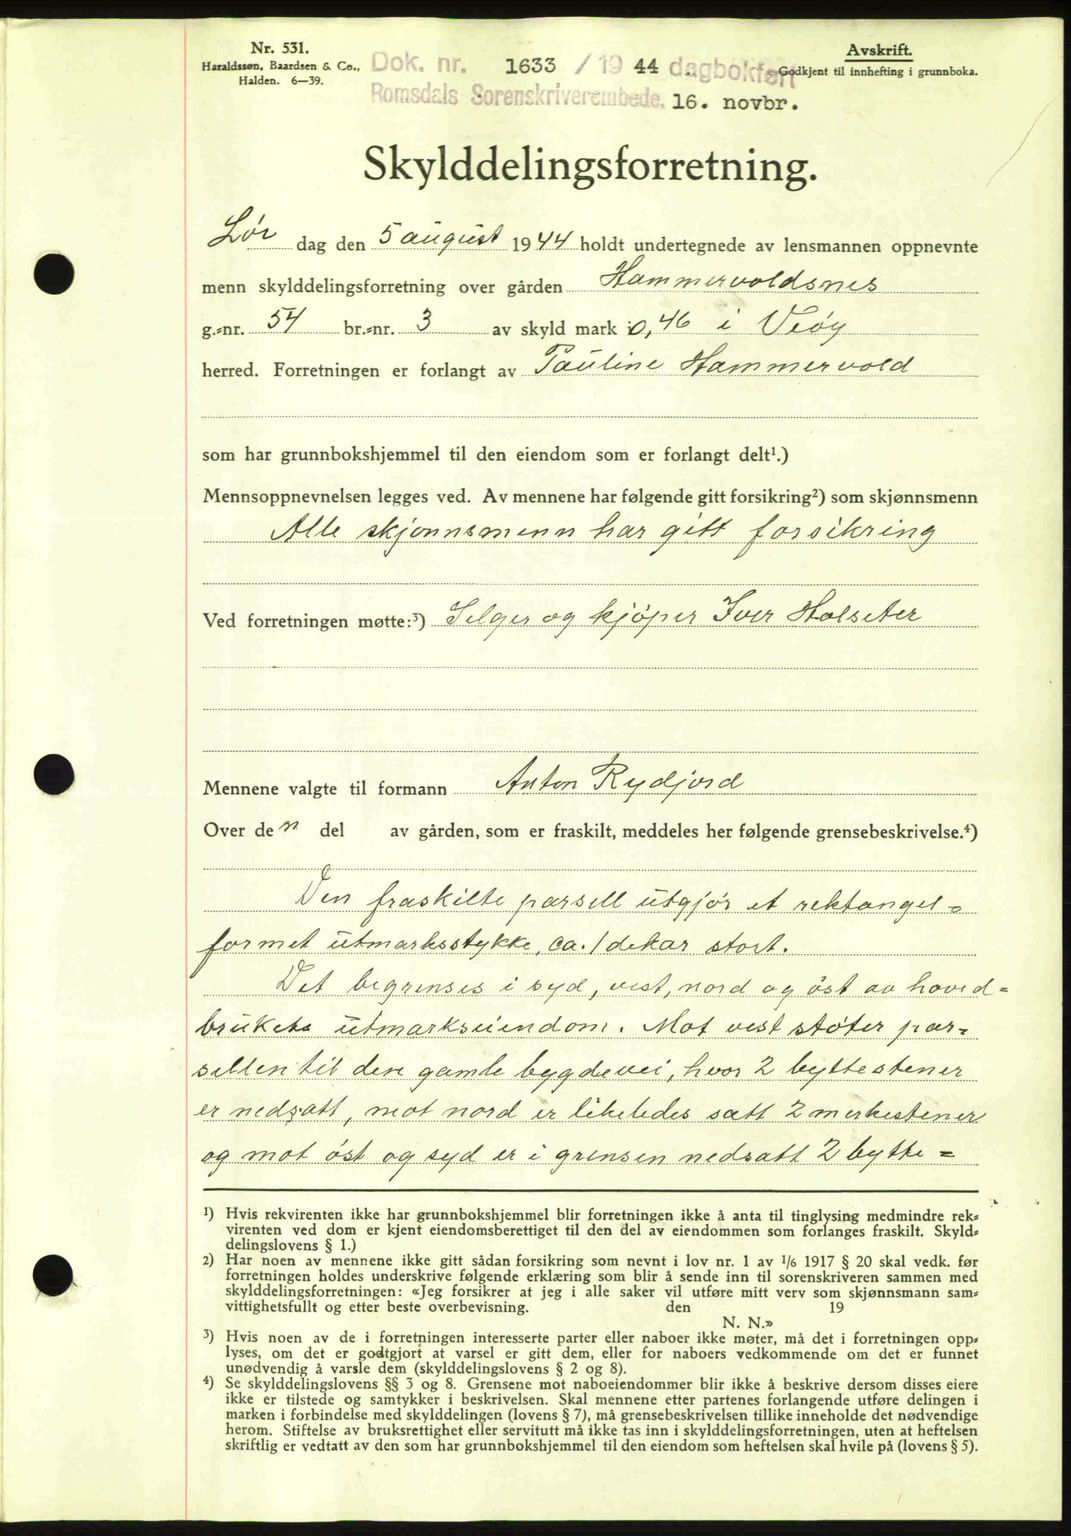 Nr. 531.
Haraldssøn, Baardsen & Co.,
Halden. 6—39.
Dok. nr. 1633 / 19 44 dagbokført
Romsdals Sorenskriverembede. 16. novbr.
Avskrift.
Godkjent til innhefting i grunnboka.
Skylddelingsforretning.
Lør dag den 5 august 1944 holdt undertegnede av lensmannen oppnevnte
menn skylddelingsforretning over gården Hammervoldsnes
g.-nr. 54 br.-nr. 3 av skyld mark 0,46 i Veøy
herred. Forretningen er forlangt av Pauline Hammervold
som har grunnbokshjemmel til den eiendom som er forlangt delt¹.)
Mennsoppnevnelsen legges ved. Av mennene har følgende gitt forsikring²) som skjønnsmenn
Alle skjønnsmenn har gitt forsikring
Ved forretningen møtte:³) Selger og kjøper Iver Holseter
Mennene valgte til formann Anton Rydjord
Over de n del av gården, som er fraskilt, meddeles her følgende grensebeskrivelse.⁴)
Den fraskilte parsell utgjør et rektangel=
formet utmarksstykke, ca. 1 dekar stort.
Det begrenses i syd, vest, nord og øst av hoved=
brukets utmarkseiendom. Mot vest støter par=
sellen til den gamle bygdevei, hvor 2 byttestener
er nedsatt, mot nord er likeledes satt 2 merkestener
og mot øst og syd er i grensen nedsatt 2 bytte=
¹) Hvis rekvirenten ikke har grunnbokshjemmel blir forretningen ikke å anta til tinglysing medmindre rek-
virenten ved dom er kjent eiendomsberettiget til den del av eiendommen som forlanges fraskilt. Skyld-
delingslovens § 1.)
²) Har noen av mennene ikke gitt sådan forsikring som nevnt i lov nr. 1 av 1/6 1917 § 20 skal vedk. før
forretningen holdes underskrive følgende erklæring som blir å sende inn til sorenskriveren sammen med
skylddelingsforretningen: «Jeg forsikrer at jeg i alle saker vil utføre mitt verv som skjønnsmann sam-
vittighetsfullt og etter beste overbevisning. den 19
N. N.»
³) Hvis noen av de i forretningen interesserte parter eller naboer ikke møter, må det i forretningen opp-
lyses, om det er godtgjort at varsel er gitt dem, eller for naboers vedkommende om det er funnet
unødvendig å varsle dem (skylddelingslovens § 2 og 8).
⁴) Se skylddelingslovens §§ 3 og 8. Grensene mot naboeiendommer blir ikke å beskrive dersom disses eiere
ikke er tilstede og samtykker i beskrivelsen. Skal mennene etter partenes forlangende utføre delingen i
marken i forbindelse med skylddelingen (lovens § 7), må grensebeskrivelsen tillike inneholde det nødvendige
herom. Stiftelse av bruksrettighet eller servitutt må ikke tas inn i skylddelingsforretningen, uten at heftelsen
skriftlig er vedtatt av den som har grunnbokshjemmel til den eiendom som heftelsen skal hvile på (lovens § 5).